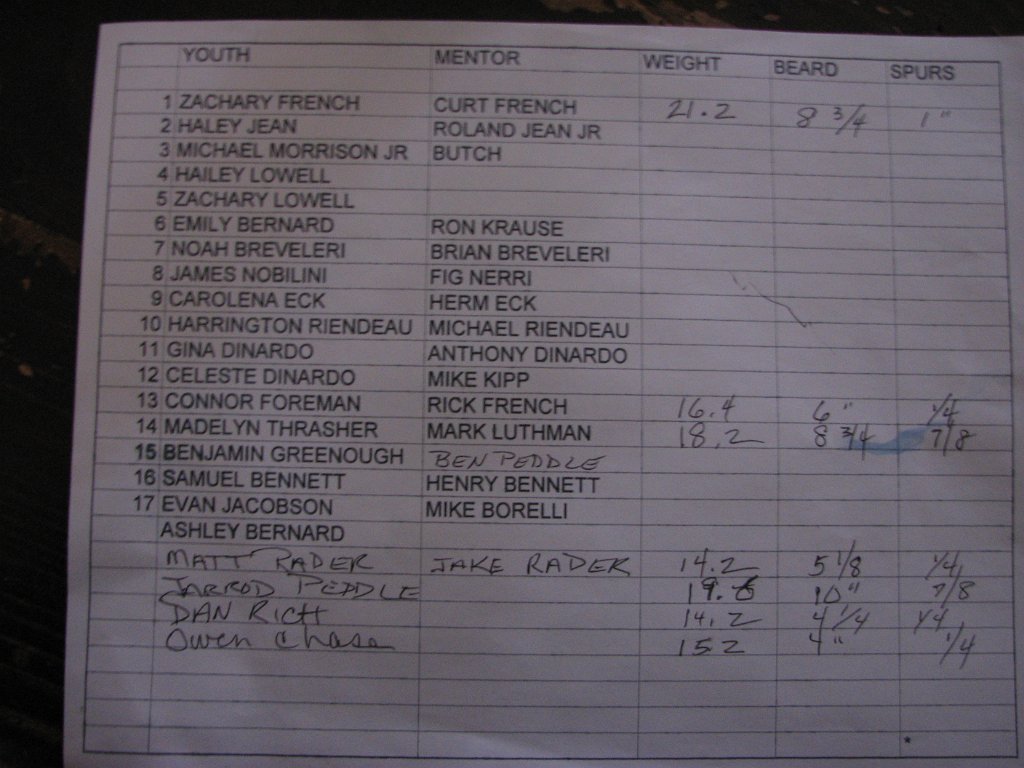 YOUTH MENTOR WEIGHT BEARD SPURS
1 ZACHARY FRENCH CURT FRENCH 21.2 8 3/4 1"
2 HALEY JEAN ROLAND JEAN JR
3 MICHAEL MORRISON JR BUTCH
4 HAILEY LOWELL
5 ZACHARY LOWELL
6 EMILY BERNARD RON KRAUSE
7 NOAH BREVELERI BRIAN BREVELERI
8 JAMES NOBILINI FIG NERRI
9 CAROLENA ECK HERM ECK
10 HARRINGTON RIENDEAU MICHAEL RIENDEAU
11 GINA DINARDO ANTHONY DINARDO
12 CELESTE DINARDO MIKE KIPP
13 CONNOR FOREMAN RICK FRENCH 16.4 6" 1/4
14 MADELYN THRASHER MARK LUTHMAN 18.2 8 3/4 7/8
15 BENJAMIN GREENOUGH BEN PEDDLE
16 SAMUEL BENNETT HENRY BENNETT
17 EVAN JACOBSON MIKE BORELLI
ASHLEY BERNARD
MATT RADER JAKE RADER 14.2 5 1/8 1/4
JARROD PEDDLE 19.6 10" 7/8
DAN RICH 14.2 4 1/4 1/4
Owen Chase 15 2 4" 1/4